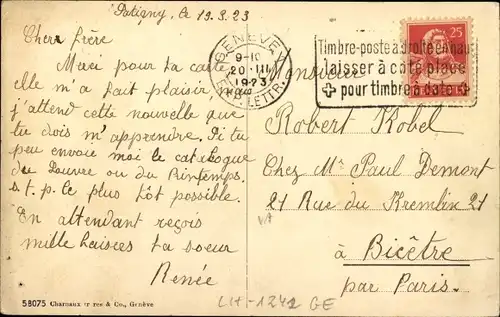 Satigny, le 19.3.23
Cher frère
Merci pour ta carte
elle m'a fait plaisir
j'attend cette nouvelle que
tu dois m'apprendre. Si tu
peu envoie moi le catalogue
du Louvre ou du Printemps.
s.t.p. le plus tôt possible.
En attendant reçois
mille baisers ta soeur
Renée
58075 Charnaux frères & Co., Genève
GENÈVE 1
9-10
20.III
1923
EXP. LETTR.
Timbre-poste à droite en haut
laisser à côté place
pour timbre à date
25
HELVETIA
Monsieur
Robert Kobel
Chez Mr Paul Demont
21 Rue du Kremlin 21
à Bicêtre
par Paris.
VA
CH-1242 GE